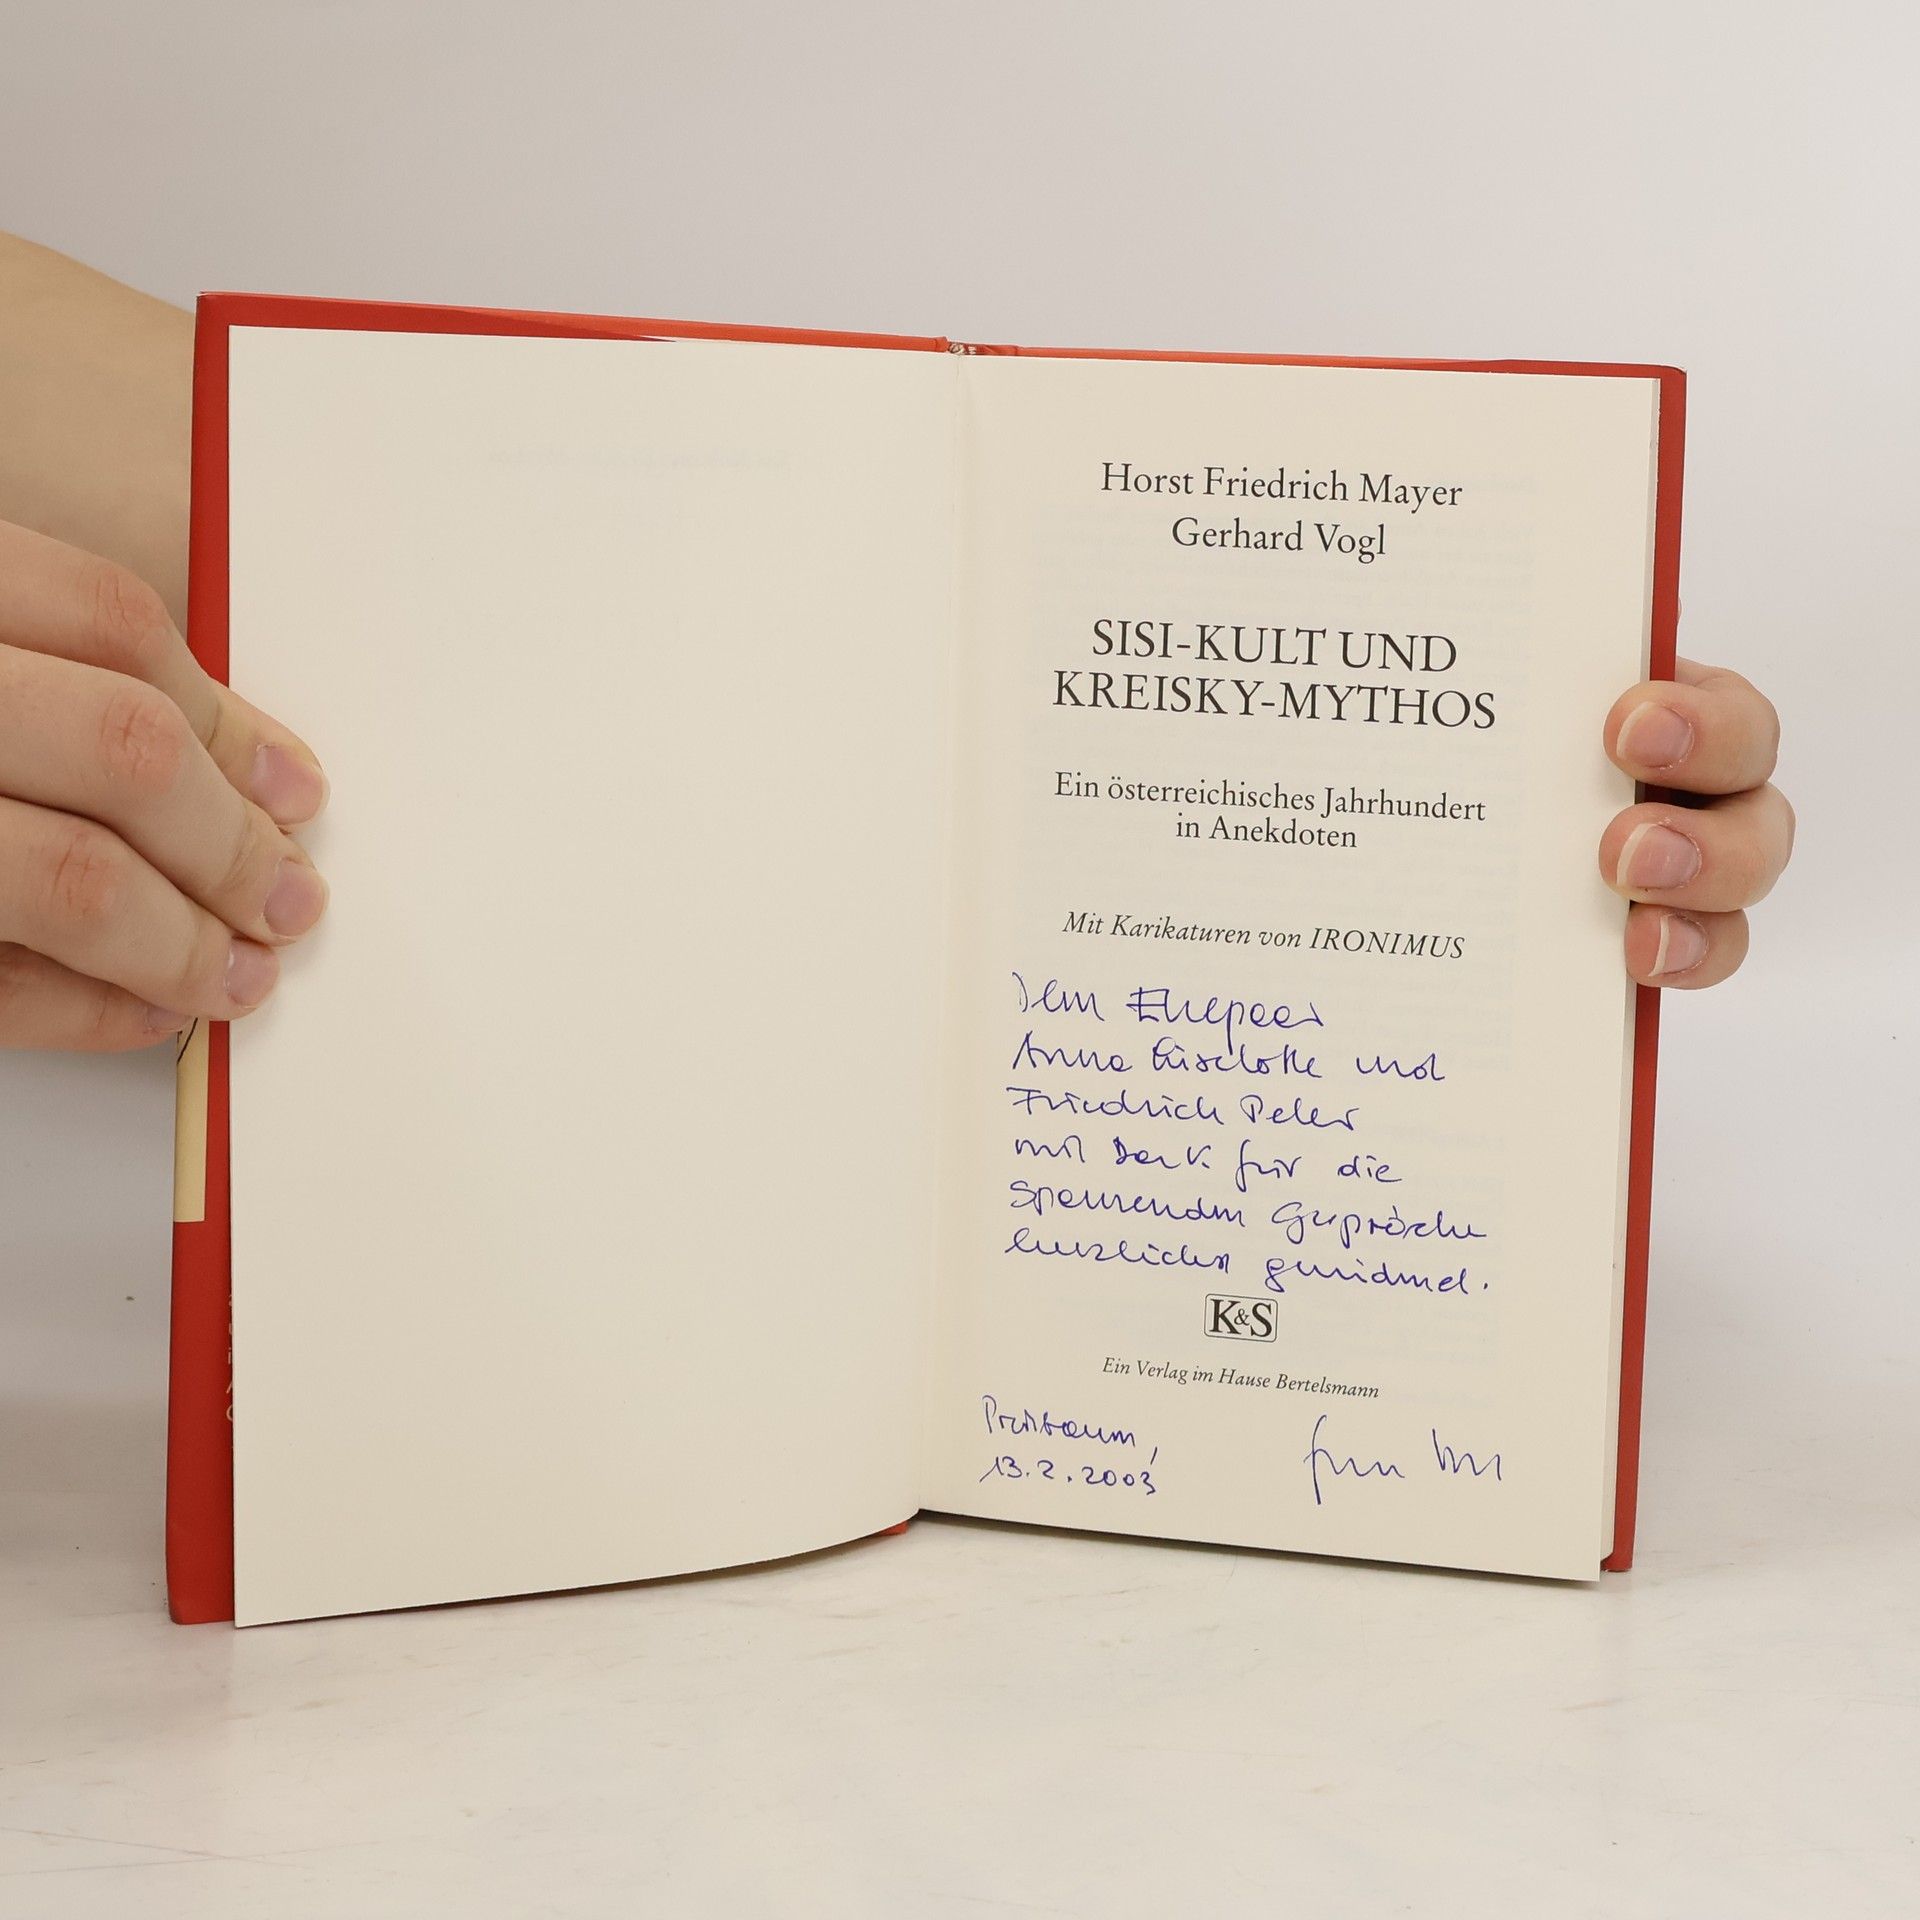 Horst Friedrich Mayer
Gerhard Vogl
SISI-KULT UND
KREISKY-MYTHOS
Ein österreichisches Jahrhundert
in Anekdoten
Mit Karikaturen von IRONIMUS
Dem Ehepaar
Anna Liselotte und
Friedrich Peter
mit Dank für die
spannenden Gespräche
herzlichst gewidmet.
K&S
Ein Verlag im Hause Bertelsmann
Preßbaum,
13.2.2003